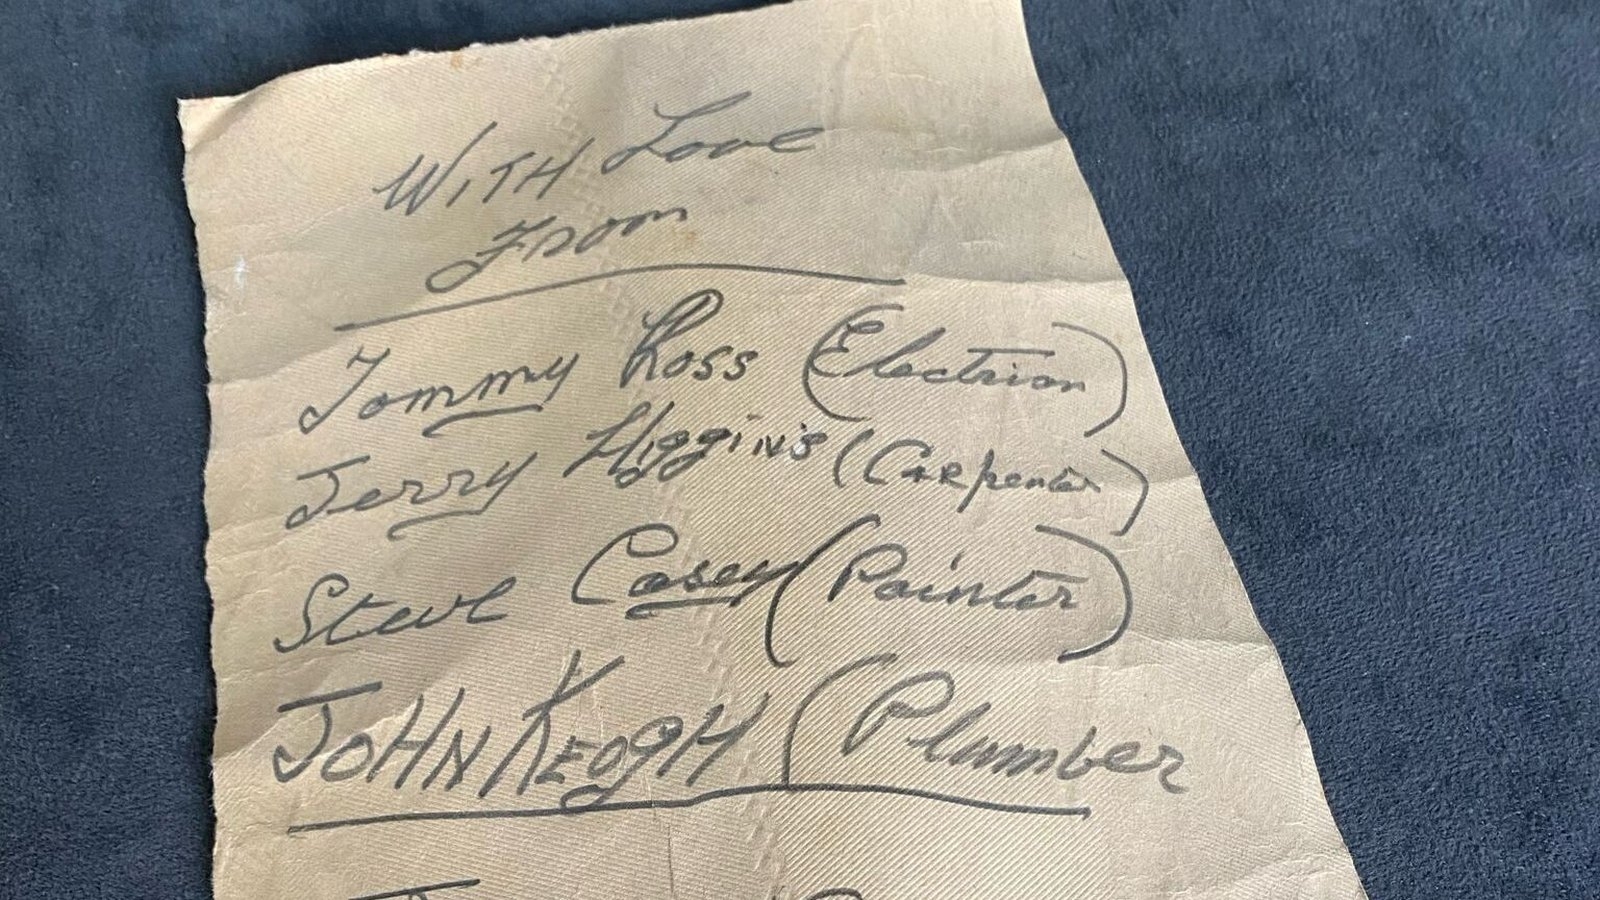 WITH Love
From
Tommy Ross (Electrion)
Jerry Higgins (CARpenter)
Steve Casey (Painter)
JOHN KEOGH (Plumber